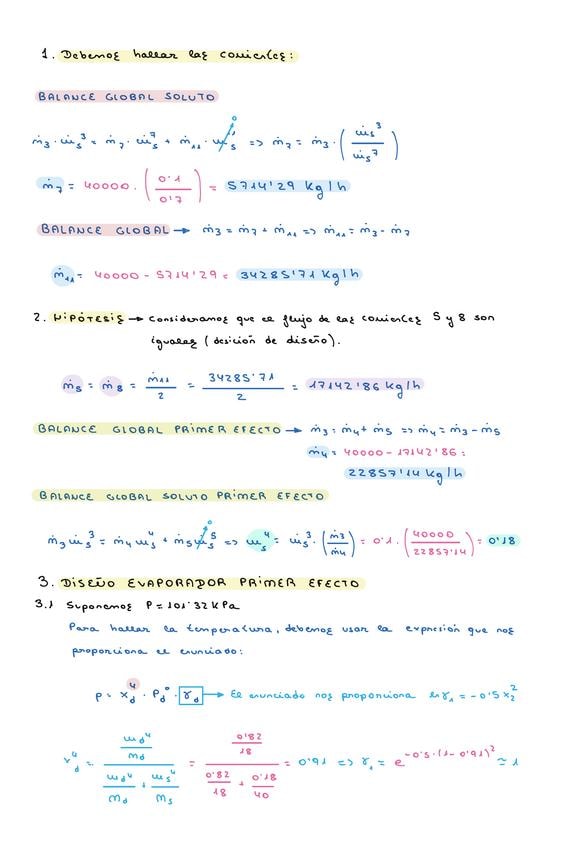 1. Debemos hallar las corrientes:
BALANCE GLOBAL SOLUTO
ṁ₃ · ẇₛ³ = ṁ₇ · ẇₛ⁷ + ṁ₁₁ · ẇₛ¹¹ ↗0 => ṁ₇ = ṁ₃ · (ẇₛ³ / ẇₛ⁷)
ṁ₇ = 40000 · (0'1 / 0'7) = 5714'29 Kg/h
BALANCE GLOBAL → ṁ₃ = ṁ₇ + ṁ₁₁ => ṁ₁₁ = ṁ₃ - ṁ₇
ṁ₁₁ = 40000 - 5714'29 = 34285'71 Kg/h
2. HIPÓTESIS → Consideramos que el flujo de las corrientes 5 y 8 son
iguales (desición de diseño).
ṁ₅ = ṁ₈ = ṁ₁₁ / 2 = 34285'71 / 2 = 17142'86 Kg/h
BALANCE GLOBAL PRIMER EFECTO → ṁ₃ = ṁ₄ + ṁ₅ => ṁ₄ = ṁ₃ - ṁ₅
ṁ₄ = 40000 - 17142'86 =
22857'14 Kg/h
BALANCE GLOBAL SOLUTO PRIMER EFECTO
ṁ₃ ẇₛ³ = ṁ₄ ẇₛ⁴ + ṁ₅ ẇₛ⁵ ↗0 => ẇₛ⁴ = ẇₛ³ · (ṁ₃ / ṁ₄) = 0'1 · (40000 / 22857'14) = 0'18
3. DISEÑO EVAPORADOR PRIMER EFECTO
3.1 Suponemos P = 101'32 KPa
Para hallar la temperatura, debemos usar la expresión que nos
proporciona el enunciado:
P = x_d⁴ · P_d° · γ_d → El enunciado nos proporciona ln γ₁ = -0'5 x₂²
x_d⁴ = (ω_d⁴ / M_d) / (ω_d⁴ / M_d + ω_s⁴ / M_s) = (0'82 / 18) / (0'82 / 18 + 0'18 / 40) = 0'91 => γ₁ = e^(-0'5 · (1 - 0'91)²) ≃ 1